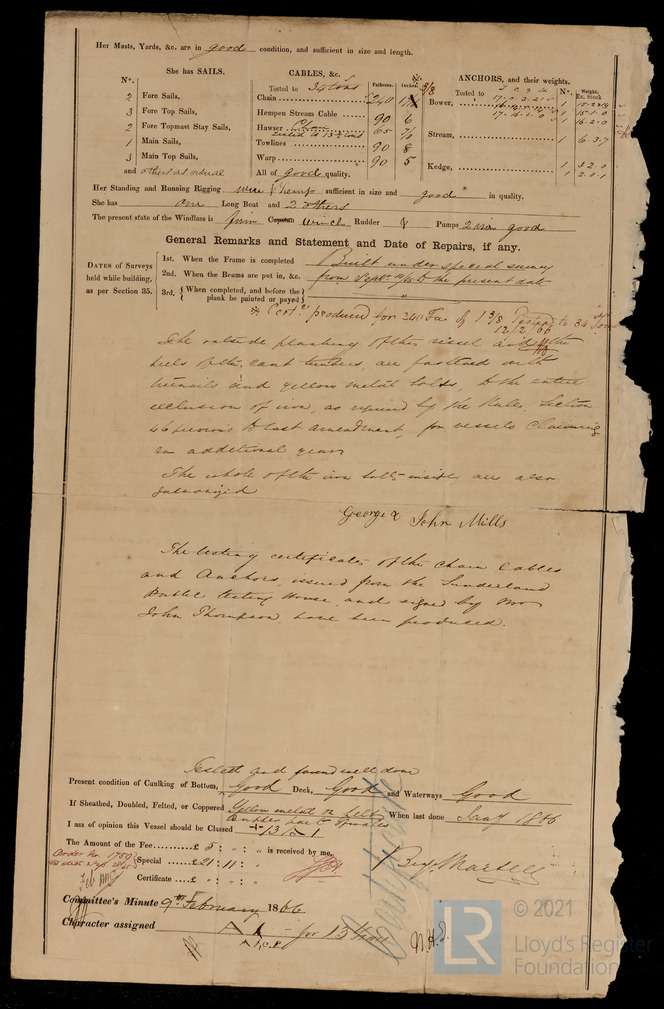 Her Masts, Yards, &c. are in good condition, and sufficient in size and length.
She has SAILS.
N°.
2 Fore Sails,
3 Fore Top Sails,
2 Fore Topmast Stay Sails,
1 Main Sails,
3 Main Top Sails,
and others as usual
CABLES, &c.
Tested to 34 tons
Fathoms. Inches.
Chain 240 1 3/8
Hempen Stream Cable 90 6
Hawser Chain 65
Towlines 90 8
Warp 90 5
All of good quality.
ANCHORS, and their weights.
Tested to
N°. Weight. Ex. Stock
Bower, 1
1 15-1-0
1 16-2-0
Stream, 1 6-3-7
Kedge, 1 3-2-0
1 2-0-1
Her Standing and Running Rigging wire & hemp sufficient in size and good in quality.
She has one Long Boat and 2 others
The present state of the Windlass is firm Capstan winch Rudder & Pumps 2 via good
General Remarks and Statement and Date of Repairs, if any.
DATES of Surveys held while building, as per Section 35.
1st. When the Frame is completed Built under special survey
2nd. When the Beams are put in, &c. from Sept. to the present date
3rd. { When completed, and before the plank be painted or payed } "
Cert. produced for 240 Fm of 1 3/8 Tested to 34 Tons
12/2/66
The outside planking of this vessel and the
heels of the cant timbers, are fastened with
treenails and yellow metal bolts, to the entire
exclusion of iron, as required by the Rules, Section
46 previous to last amendment, for vessels claiming
an additional year
The whole of the iron bolts inside are also
galvanized
George & John Mills
The testing certificates of the chain cables
and Anchors, issued from the Sunderland
Public testing House, and signed by Mr
John Thompson, have been produced.
Tested and found well done
Present condition of Caulking of Bottom, Good Deck, Good and Waterways Good
If Sheathed, Doubled, Felted, or Coppered Yellow metal on felt When last done Jany 1866
I am of opinion this Vessel should be Classed 13 A 1
The Amount of the Fee £ 5 : " : " is received by me,
Special £ 21 : 11 : "
Certificate £ " : " : "
Order No. 1750
Benj. Martell
Certificate
Committee's Minute 9th February 1866
Character assigned A 1 - for 13
N.H.S.
LR
© 2021
Lloyd's Register
Foundation